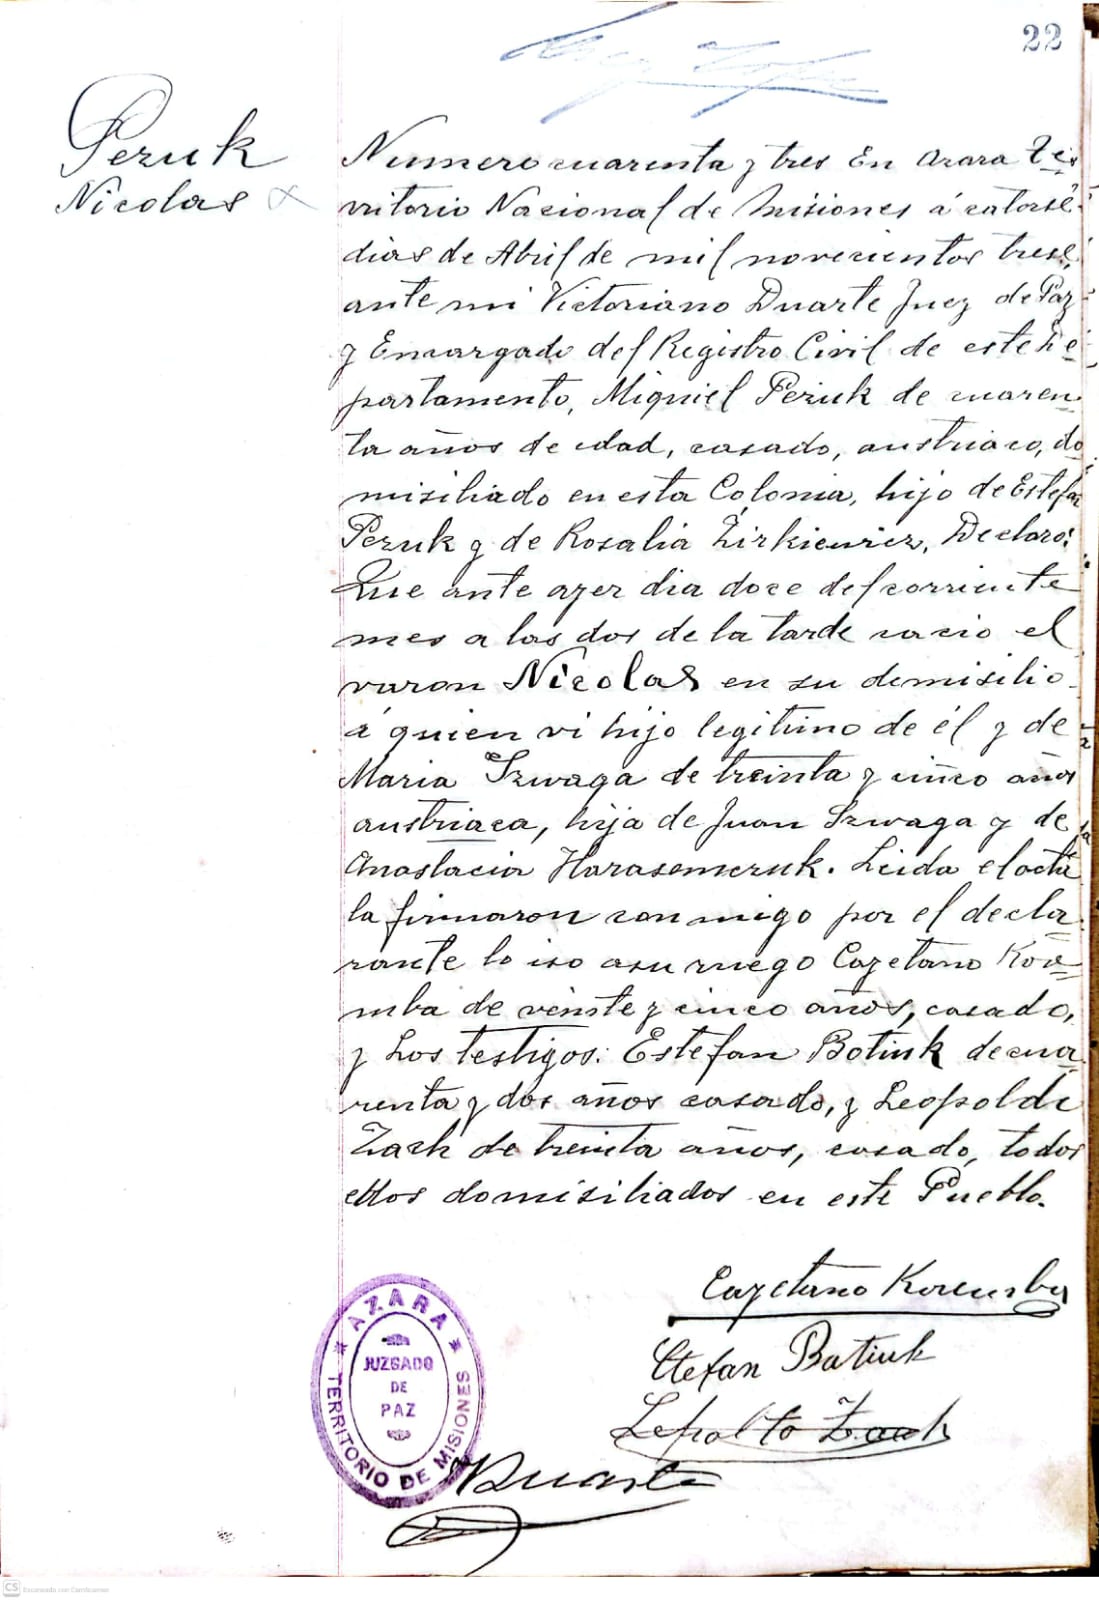 22
Peruk
Nicolas
Numero cuarenta y tres En Azara Te=
rritorio Nacional de Misiones á catorse
dias de Abril de mil novecientos trese,
ante mi Victoriano Duarte Juez de Paz
y Encargado del Registro Civil de este De=
partamento, Miguiel Peruk de cuaren=
ta años de edad, casado, austriaco, do=
misiliado en esta Colonia, hijo de Estefan
Peruk y de Rosalia Zirkiewicz, Declaro:
Que ante ayer dia doce del corriente
mes a las dos de la tarde nacio el
varon Nicolas en su demisilio
á quien vi hijo legitimo de él y de
Maria Szwaga de treinta y cinco años
austriaca, hija de Juan Szwaga y de
Anastacia Harasemczuk. Leida el acta
la firmaron con migo por el decla=
rante lo iso a su ruego Cazetano Kore=
mba de veinte y cinco años, casado,
y Los testigos: Estefan Botiuk de cua=
renta y dos años casado, y Leopoldo
Zach de treinta años, casado, todos
ellos domisiliados en este Pueblo.
Cazetano Koremba
Stefan Batiuk
Lepolto Zach
VDuarte
AZARA
JUZGADO
DE
PAZ
TERRITORIO DE MISIONES
CS Escaneado con CamScanner